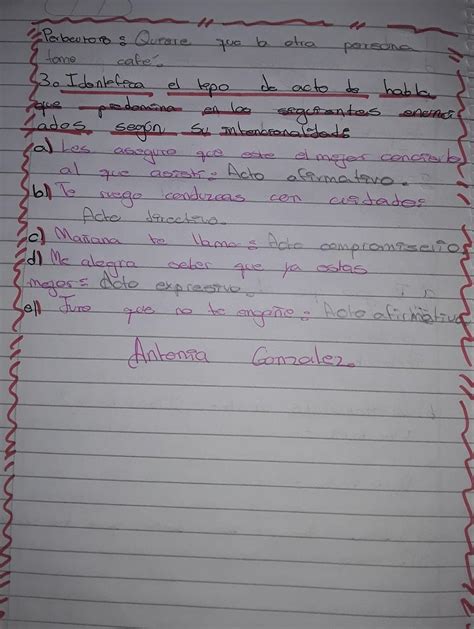 Perlocutoro : Querere que la otra persona
tome café.
3. Identefeca el tepo de acto de habla
que predomena en los seguientes enunci
ados según su intencionalidad:
a) Les aseguro que este el mejor concierto
al que asistí : Acto afirmativo.
b) Te ruego conduzcas con cuidado:
Acto directivo.
c) Mañana te llamo : Acto compromiserio
d) Me alegra saber que ya estas
mejor : Acto expresivo.
e) Juro que no te engañe : Acto afirmativo
Antonia Gonzalez.